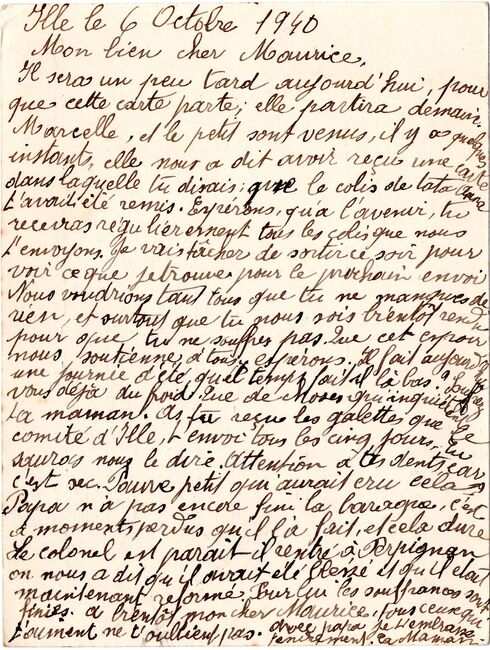 Ille le 6 Octobre 1940
Mon bien cher Maurice,
Il sera un peu tard aujourd'hui, pour
que cette carte parte; elle partira demain.
Marcelle, et le petit sont venus, il y a quelques
instant, elle nous a dit avoir reçu une carte
dans laquelle tu disais, que le colis de tata
t'avait été remis. Espérons, qu'a l'avenir, tu
recevras régulièrement tous les colis que nous
t'envoyons. Je vais tâcher de sortir ce soir pour
voir ce que je trouve pour le prochain envoi
Nous voudrions tant tous que tu ne manques de
rien, et surtout que tu nous sois bientôt rendu
pour que tu ne souffres pas. Que cet espoir
nous soutienne, à tous, espérons. Il fait aujourd'hui
une journée d'été quel temps fait il là bas?
vous déjà du froid. Que de choses qui inquiètent
ta maman. As tu reçu les galettes que le
comite d'Ille, t'envoi tous les cinq jours, tu
sauras nous le dire. Attention à tes dents, car
c'est sec. Pauvre petit qui aurait cru cela
Papa n'a pas encore fini la baraque, c'est
à moments perdus qu'il la fait, et cela dure
Le colonel est parait il rentré à Perpignan
on nous a dit qu'il avait été blessé et qu'il etait
maintenant reformé. Pour lui les souffrances sont
finies. A bientôt mon cher Maurice, tous ceux qui
t'aiment ne t'oublient pas. Avec papa je t'embrasse
tendrement. ta Maman